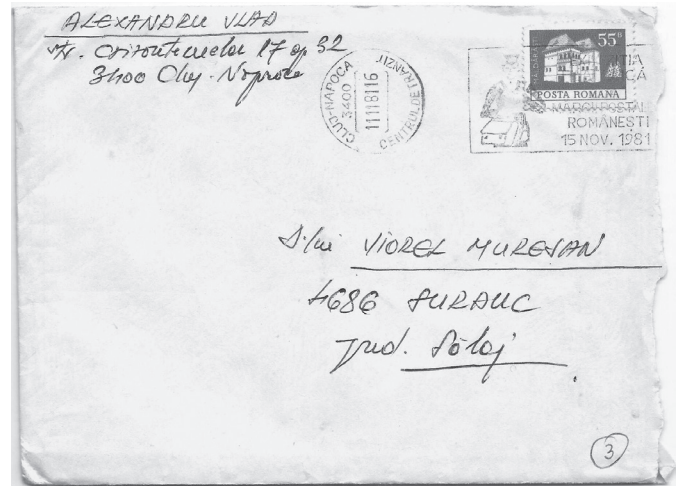 ALEXANDRU VLAD
str. Crizantemelor 17 ap 32
3400 Cluj-Napoca
CLUJ-NAPOCA
3400
11118116
CENTRUL DE TRANZIT
55B
POSTA ROMANA
MĂRCI POȘTALE
ROMÂNEȘTI
15 NOV. 1981
D-lui VIOREL MUREȘAN
4686 SURDUC
jud. Sălaj
3